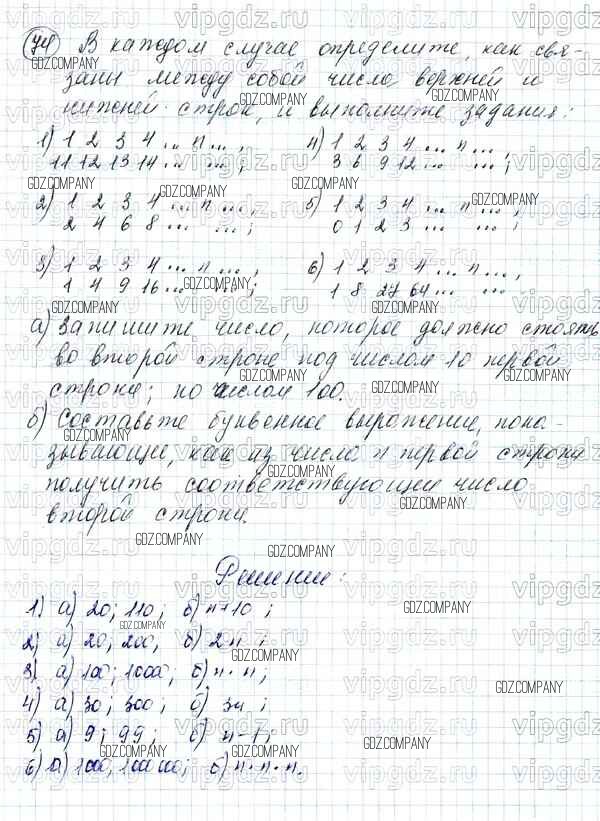 74 В каждом случае определите, как свя-
заны между собой числа верхней и
нижней строк, и выполните задания:
1) 1 2 3 4 ... n ... ,
11 12 13 14 ... ... ;
4) 1 2 3 4 ... n ... ,
3 6 9 12 ... ... ;
2) 1 2 3 4 ... n ... ,
2 4 6 8 ... ... ;
5) 1 2 3 4 ... n ... ,
0 1 2 3 ... ... ;
3) 1 2 3 4 ... n ... ,
1 4 9 16 ... ... ;
6) 1 2 3 4 ... n ... ,
1 8 27 64 ... ... ;
а) Запишите число, которое должно стоять
во второй строке под числом 10 первой
строки; по числом 100.
б) Составьте буквенное выражение, пока-
зывающее, как из числа n первой строки
получить соответствующее число
второй строки.
Решение:
1) а) 20; 110; б) n+10 ;
2) а) 20, 200, б) 2n ;
3) а) 100; 1000, б) n·n;
4) а) 30; 300; б) 3n ;
5) а) 9; 99; б) n-1;
6) а) 1000, б) n·n·n.
vipgdz.ru
GDZ.COMPANY